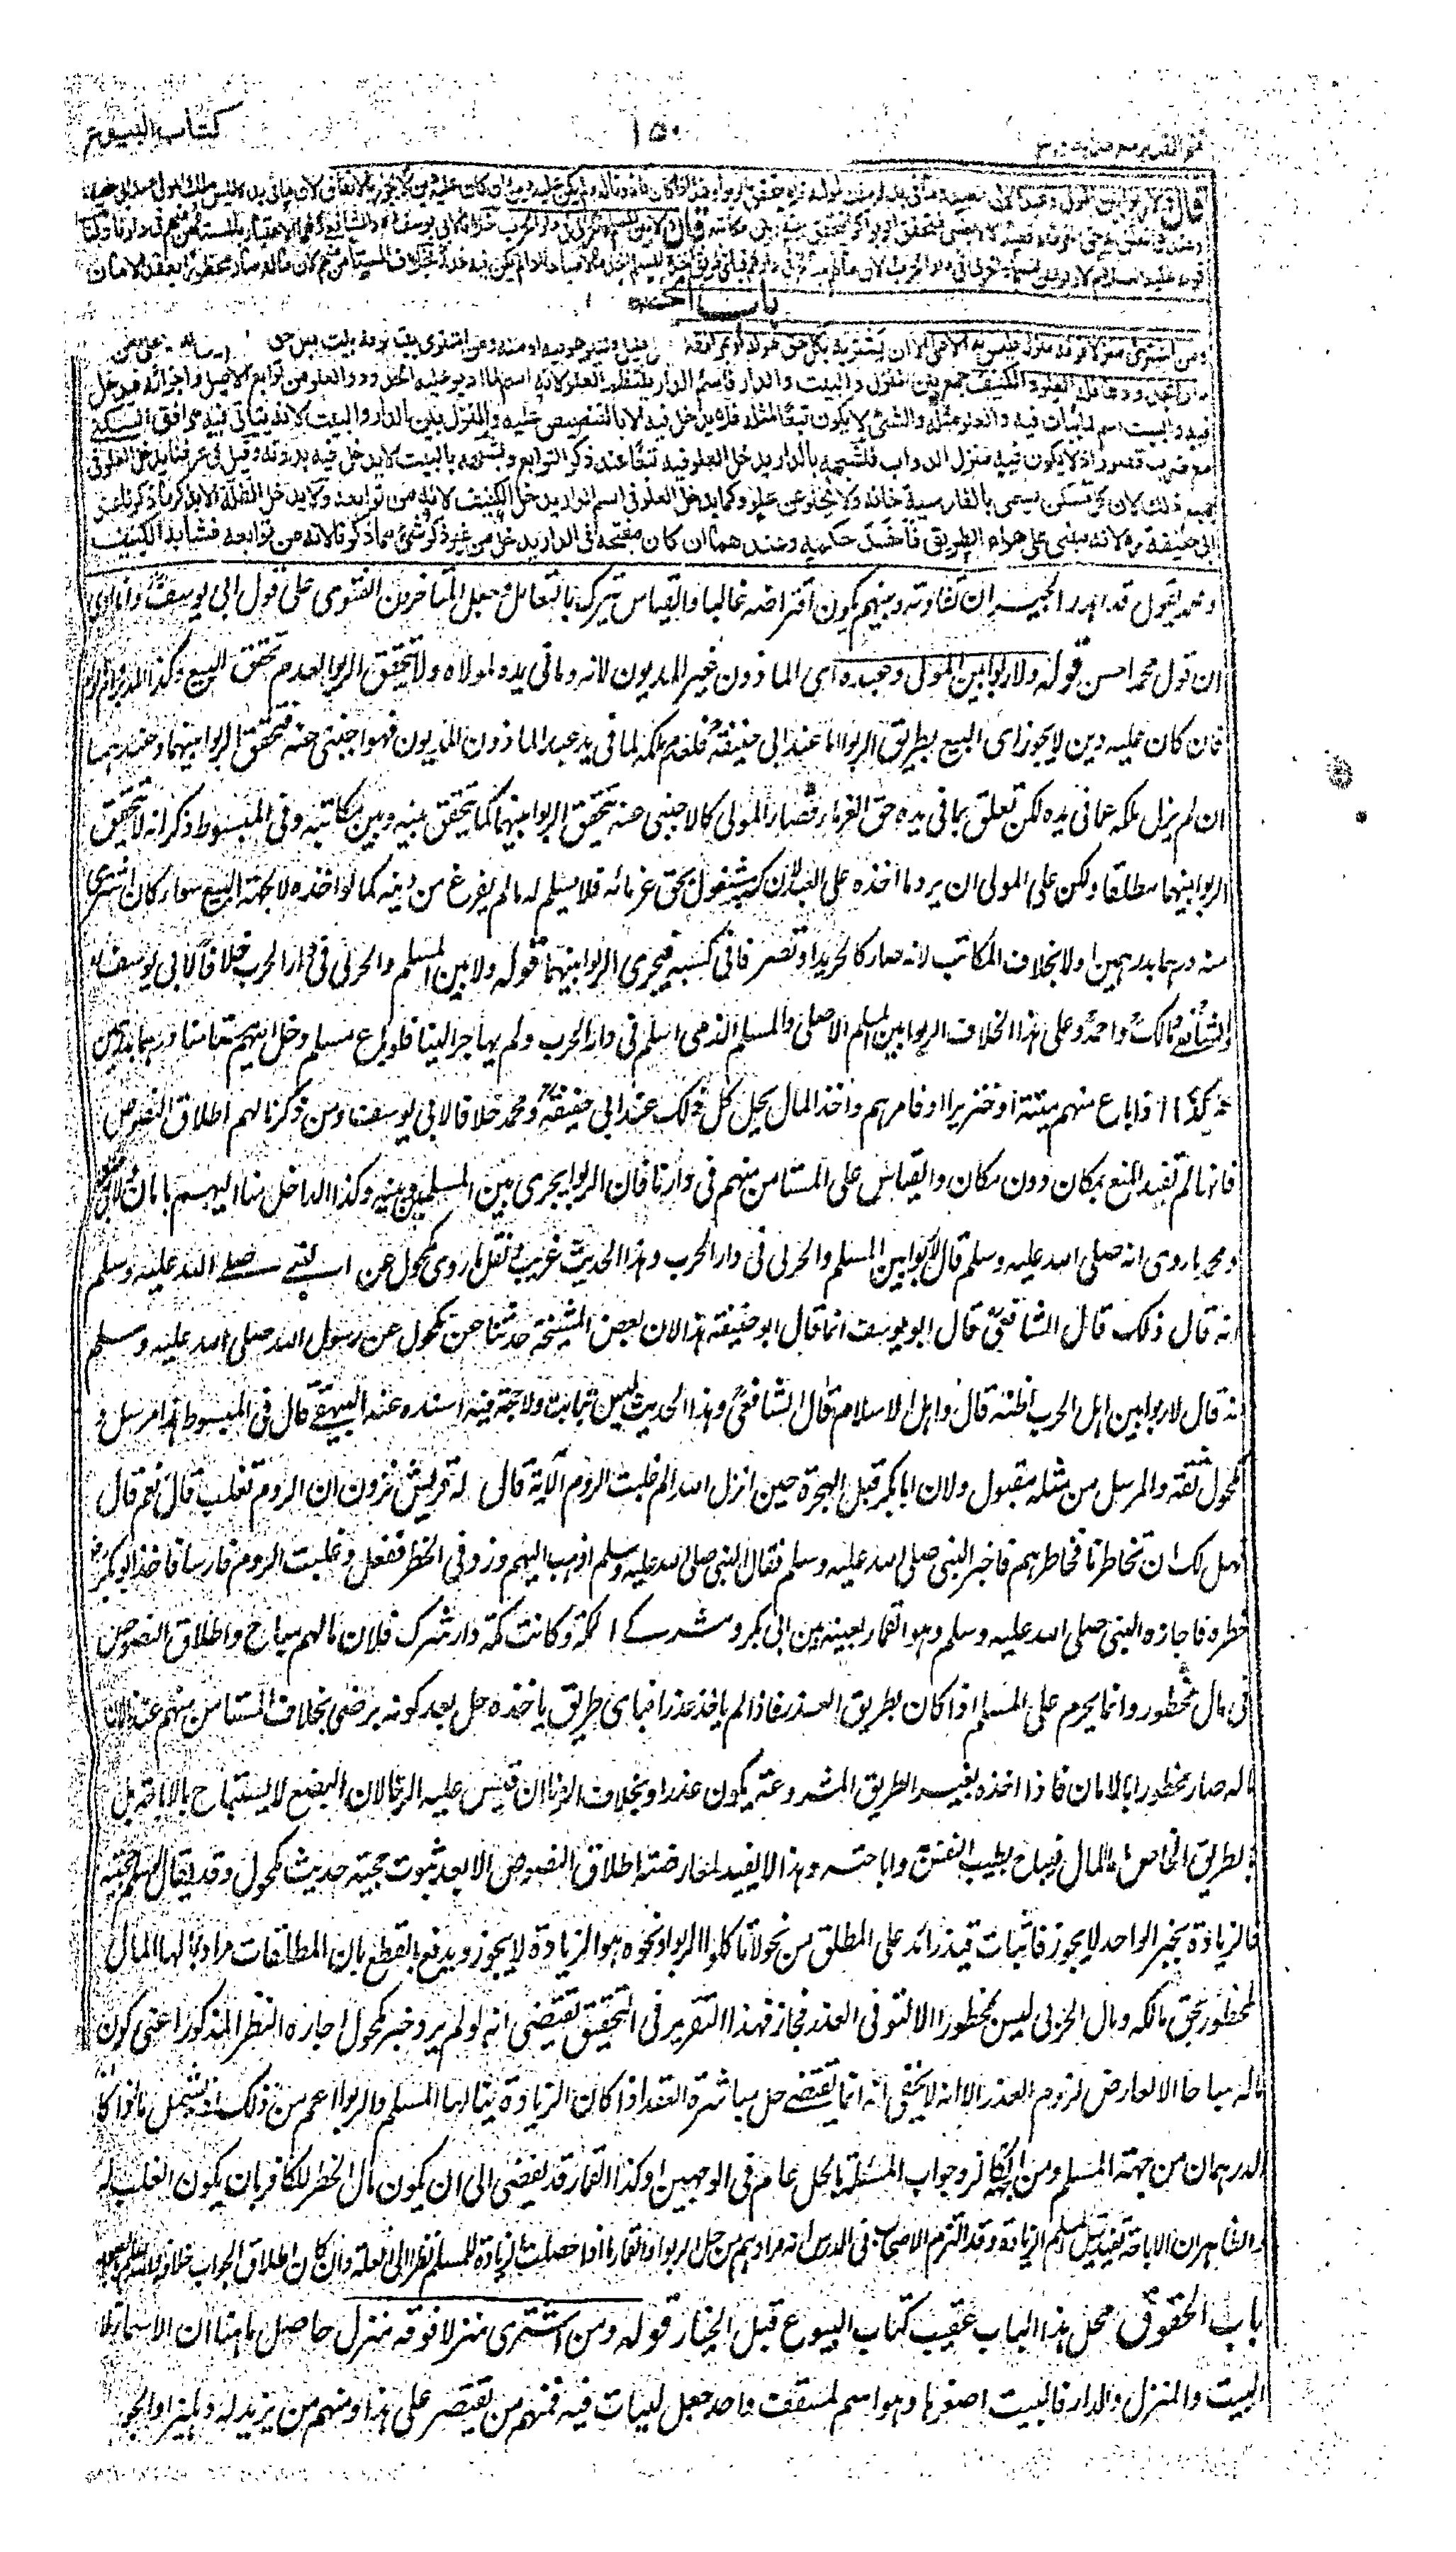 كتاب البيوع
١٥٠
فتح القدير مع هدايه ج ٣
قال ولا ربوا بين المولى وعبده لان العبد وما في يده ملك لمولاه فلا يتحقق الربوا وهذا اذا كان ماذونا له ولم يكن عليه دين وان كان عليه دين لا يجوز بالاتفاق لان ما في يده ليس ملك المولى عند ابي حنيفة
وعندهما تعلق به حق الغرماء فصار كالاجنبي فيتحقق الربوا كما يتحقق بينه وبين مكاتبه قال ولا بين المسلم والحربي في دار الحرب خلافا لابي يوسف والشافعي لهما الاعتبار بالمستامن منهم في دارنا ولنا
قوله عليه السلام لا ربوا بين المسلم والحربي في دار الحرب لان مالهم مباح في دارهم فباي طريق اخذه المسلم اخذ مالا مباحا اذا لم يكن فيه غدر بخلاف المستامن منهم لان ماله صار محظورا بعقد الامان
باب الحقوق
ومن اشترى منزلا فوقه منزل فليس له الاعلى الا ان يشتريه بكل حق هو له او بمرافقه او بكل قليل وكثير هو فيه او منه ومن اشترى بيتا فوقه بيت بكل حق
دار الخل ودخل العلو والكنيف جمع بين المنزل والبيت والدار فاسم الدار ينتظم العلو لانه اسم لما ادير عليه الحدود والعلو من توابع الاصل واجزائه فيدخل
فيه والبيت اسم لما يبات فيه والعلو مثله والشئ لا يكون تبعا لمثله فلا يدخل فيه الا بالتنصيص عليه والمنزل بين الدار والبيت لانه يتاتى فيه مرافق السكنى
مع ضرب قصور اذ لا يكون فيه منزل الدواب فلشبهه بالدار يدخل العلو فيه تبعا عند ذكر التوابع ولشبهه بالبيت لا يدخل فيه بدونه وقيل في عرفنا يدخل العلو في
جميع ذلك لان كل مسكن يسمى بالفارسية خانه ولا يخلو عن علو وكما يدخل العلو في اسم الدار يدخل الكنيف لانه من توابعه ولا يدخل الظلة الا بذكر ما ذكرنا عند
ابي حنيفة ره لانه مبني على هواء الطريق فاخذ حكمه وعندهما ان كان مفتحه في الدار يدخل من غير ذكر شئ مما ذكرنا لانه من توابعه فشابه الكنيف
ومحمد يقول قد اهدر الجيران تفاوته وبينهم يكون اقتراضه غالبا والقياس يترك بالتعامل وجعل المتاخرون الفتوى على قول ابي يوسف وانا ارى
ان قول محمد احسن قوله ولا ربوا بين المولى وعبده اى الماذون غير المديون لانه وما في يده لمولاه ولا يتحقق الربوا لعدم تحقق البيع وكذا المدبر وام الولد
فان كان عليه دين لا يجوز اى البيع بطريق الربوا اما عند ابي حنيفة فلعدم ملكه لما في يد عبده الماذون المديون فهو اجنبي عنه فتحقق الربوا بينهما وعندهما
ان لم يزل ملكه عما في يده لكن تعلق بما في يده حق الغرماء فصار المولى كالاجنبي عنه يتحقق الربوا بينهما كما يتحقق بينه وبين مكاتبه وفي المبسوط ذكر انه لا يتحقق
الربوا بينهما مطلقا ولكن على المولى ان يرد ما اخذه على العبد لان كسبه مشغول بحق غرمائه فلا يسلم له مالم يفرغ من دينه كما لو اخذه لا بجهة البيع سواء كان اشترى
منه درهما بدرهمين او لا بخلاف المكاتب لانه صار كالحر يدا وتصرفا في كسبه فيجرى الربوا بينهما قوله ولا بين المسلم والحربي في دار الحرب خلافا لابي يوسف
والشافعي ومالك واحمد وعلى هذا الخلاف الربوا بين المسلم الاصلى والمسلم الذى اسلم في دار الحرب ولم يهاجر الينا فلو باع مسلم دخل اليهم مستامنا درهما بدرهمين
حل وكذا اذا باع منهم ميتة او خنزيرا او قامرهم واخذ المال يحل كل ذلك عند ابي حنيفة ومحمد خلافا لابي يوسف ومن ذكرنا لهم اطلاق النصوص
فانها لم تقيد المنع بمكان دون مكان والقياس على المستامن منهم في دارنا فان الربوا يجرى بين المسلمين وبينه وكذا الداخل منا اليهم بامان ولابي حنيفة
ومحمد ما روى انه صلى الله عليه وسلم قال لا ربوا بين المسلم والحربي في دار الحرب وهذا الحديث غريب ونقل ما روى مكحول عن النبي صلى الله عليه وسلم
انه قال ذلك قال الشافعي قال ابو يوسف انما قال ابو حنيفة هذا لان بعض المشيخة حدثنا عن مكحول عن رسول الله صلى الله عليه وسلم
انه قال لا ربوا بين اهل الحرب اظنه قال واهل الاسلام قال الشافعي وهذا الحديث ليس بثابت ولا حجة فيه اسنده عنه البيهقي قال في المبسوط هذا مرسل و
مكحول ثقة والمرسل من مثله مقبول ولان ابا بكر قبل الهجرة حين انزل الله الم غلبت الروم الآية قال له قريش ترون ان الروم تغلب قال نعم قال
هل لك ان تخاطرنا فخاطرهم فاخبر النبي صلى الله عليه وسلم فقال النبي صلى الله عليه وسلم اذهب اليهم وزد في الخطر ففعل وغلبت الروم فارسا فاخذ ابو بكر
خطره فاجازه النبي صلى الله عليه وسلم وهو القمار بعينه بين ابي بكر ومشركى مكة وكانت مكة دار شرك فلان مالهم مباح واطلاق النصوص
في مال محظور وانما يحرم على المسلم اذا كان بطريق الغدر فاذا لم ياخذ غدرا فباى طريق ياخذه حل بعد كونه برضى بخلاف المستامن منهم عندنا لان
ماله صار محظورا بالامان فاذا اخذه بغير الطريق المشروعة يكون غدرا وبخلاف الزنا ان قيس عليه الربا لان البضع لا يستباح بالاباحة بل
بالطريق الخاص اما المال فيباح بطيب النفس واباحته وهذا لا يفيد لمعارضة اطلاق النصوص الا بعد ثبوت حجية حديث مكحول وقد يقال لو سلم حجيته
فالزيادة بخبر الواحد لا يجوز فاثبات قيد زائد على المطلق من نحو لا تاكلوا الربوا ونحوه هو الزيادة لا يجوز ويدفع بالقطع بان المطلقات مراد بمحلها المال
المحظور بحق مالكه ومال الحربي ليس بمحظور الا لتوقى الغدر فجاز فهذا التقرير في التحقيق يقتضى انه لو لم يرد خبر مكحول اجازه النظر المذكور اعنى كون
ماله مباحا الا لعارض لزوم الغدر الا انه لا يخفى انه انما يقتضى حل مباشرة العقد اذا كان الزيادة ينالها المسلم والربوا اعم من ذلك اذ يشمل ما اذا كان
الدرهمان من جهة المسلم ومن جهة الكافر وجواب المسئلة بالحل عام في الوجهين وكذا القمار قد يفضى الى ان يكون مال الخطر للكافر بان يكون الغلب له
فالظاهر ان الاباحة تفيد نيل المسلم الزيادة وقد التزم الاصحاب في الدرس انه مرادهم من حل الربوا والقمار ما اذا حصلت الزيادة للمسلم نظرا الى العلة وان كان اطلاق الجواب خلافه
باب الحقوق محل هذا الباب عقيب كتاب البيوع قبل الخيار قوله ومن اشترى منزلا فوقه منزل حاصل ما هنا ان الاسماء ثلاثة
البيت والمنزل والدار فالبيت اصغرها وهو اسم لمسقف واحد جعل ليبات فيه فمنهم من يقتصر على هذا ومنهم من يزيد له دهليزا